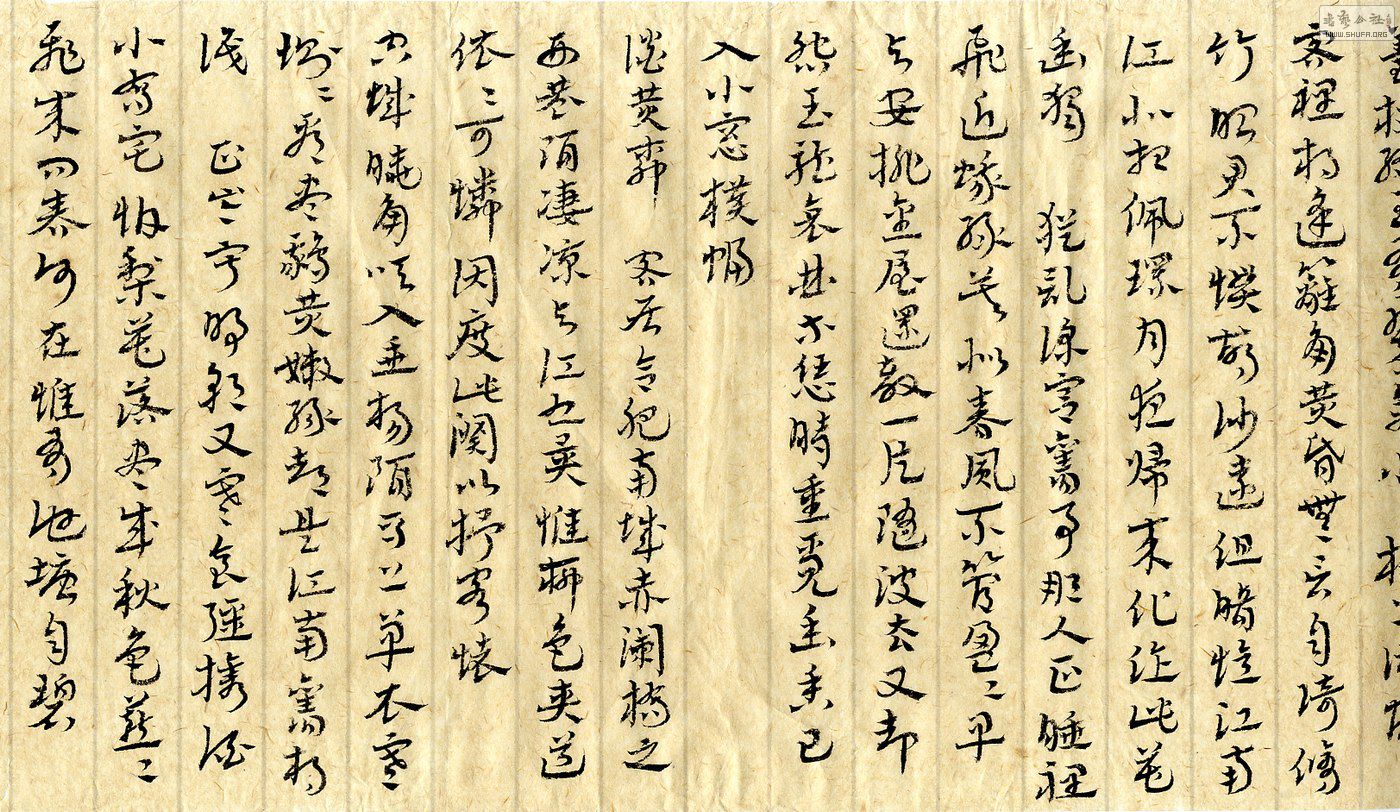 客裡相逢籬角黃昏無言自倚修
竹昭君不慣胡沙遠但暗憶江南
江北想佩環月夜歸來化作此花
幽獨 猶記深宮舊事那人正睡裡
飛近蛾綠莫似春風不管盈〻早
與安排金屋還教一片隨波去又却
怨玉龍哀曲等恁時重覓幽香已
入小窓橫幅
淡黃柳 客居合肥南城赤闌橋之
西巷陌淒涼與江左異惟柳色夾道
依〻可憐因度此闋以抒客懷
空城曉角吹入垂楊陌馬上單衣寒
惻〻看盡鵝黃嫩綠都是江南舊相
識 正岑寂明朝又寒食強攜酒
小喬宅怕梨花落盡成秋色燕〻
飛來問春何在惟有池塘自碧
WWW.SHUFA.ORG